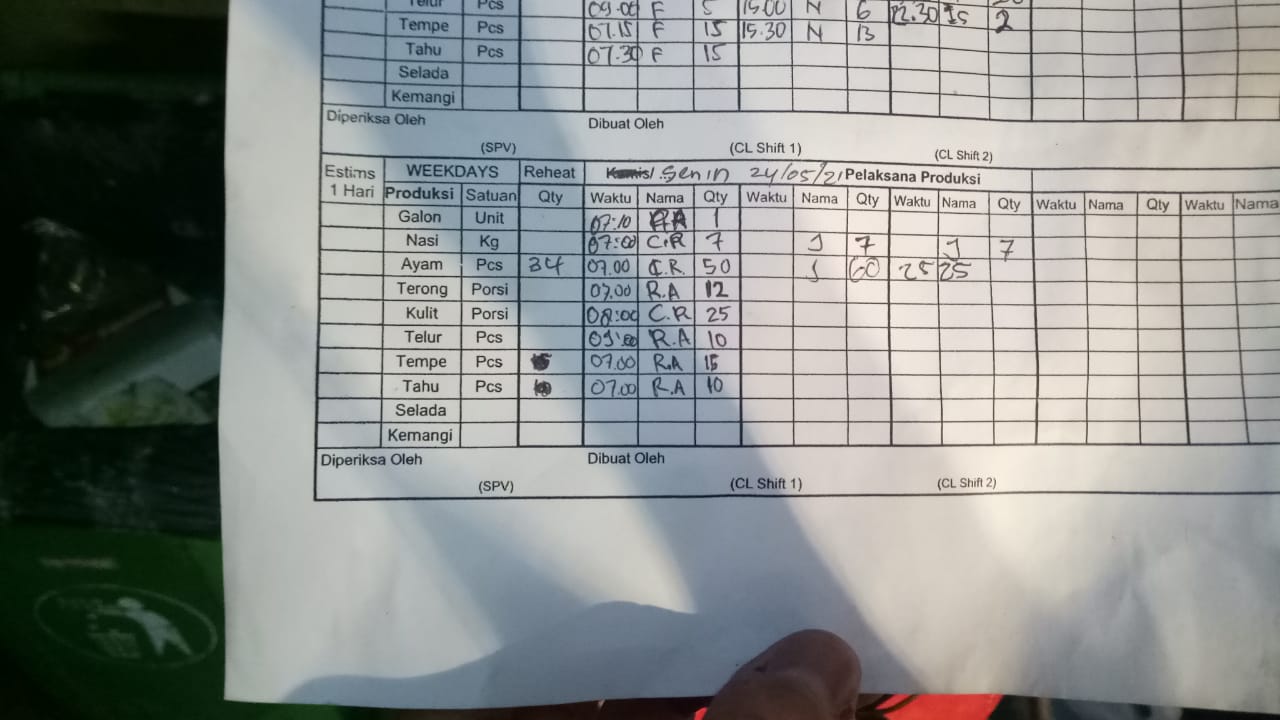 Telur Pcs 09.00 F 5 15.00 N 6 22.30 2
Tempe Pcs 07.15 F 15 15.30 N 13
Tahu Pcs 07.30 F 15
Selada
Kemangi
Diperiksa Oleh Dibuat Oleh
(SPV) (CL Shift 1) (CL Shift 2)
Estims WEEKDAYS Reheat Kamis/ Senin 24/05/21 Pelaksana Produksi
1 Hari Produksi Satuan Qty Waktu Nama Qty Waktu Nama Qty Waktu Nama Qty Waktu Nama Qty Waktu Nama
Galon Unit 07:10 RA 1
Nasi Kg 07:00 C.R 7 J 7 J 7
Ayam Pcs 34 07.00 C.R. 50 J 60 25 25
Terong Porsi 07.00 R.A 12
Kulit Porsi 08:00 C.R 25
Telur Pcs R.A 10
Tempe Pcs 07.00 R.A 15
Tahu Pcs 07.00 R.A 10
Selada
Kemangi
Diperiksa Oleh Dibuat Oleh
(SPV) (CL Shift 1) (CL Shift 2)